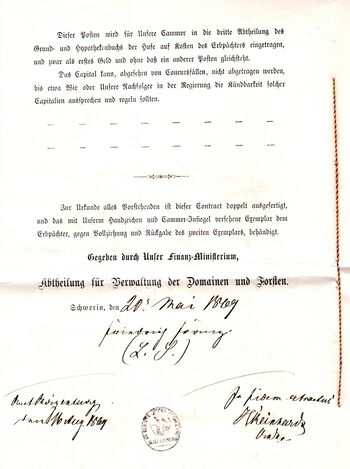 Dieser Posten wird für Unsere Cammer in die dritte Abtheilung des
Grund- und Hypothekenbuchs der Hufe auf Kosten des Erbpächters eingetragen,
und zwar als erstes Geld und ohne daß ein anderer Posten gleichsteht.
Das Capital kann, abgesehen von Concursfällen, nicht abgetragen werden,
bis etwa Wir oder Unsere Nachfolger in der Regierung die Kündbarkeit solcher
Capitalien aussprechen und regeln sollten.
Zur Urkunde alles Vorstehenden ist dieser Contract doppelt ausgefertigt,
und das mit Unserm Handzeichen und Cammer-Insiegel versehene Exemplar dem
Erbpächter, gegen Vollziehung und Rückgabe des zweiten Exemplars, behändigt.
Gegeben durch Unser Finanz-Ministerium,
Abtheilung für Verwaltung der Domainen und Forsten.
Schwerin, den 20. Mai 1869
Friedrich Franz.
(L. S.)
Amt
den Aug 1869
In fidem